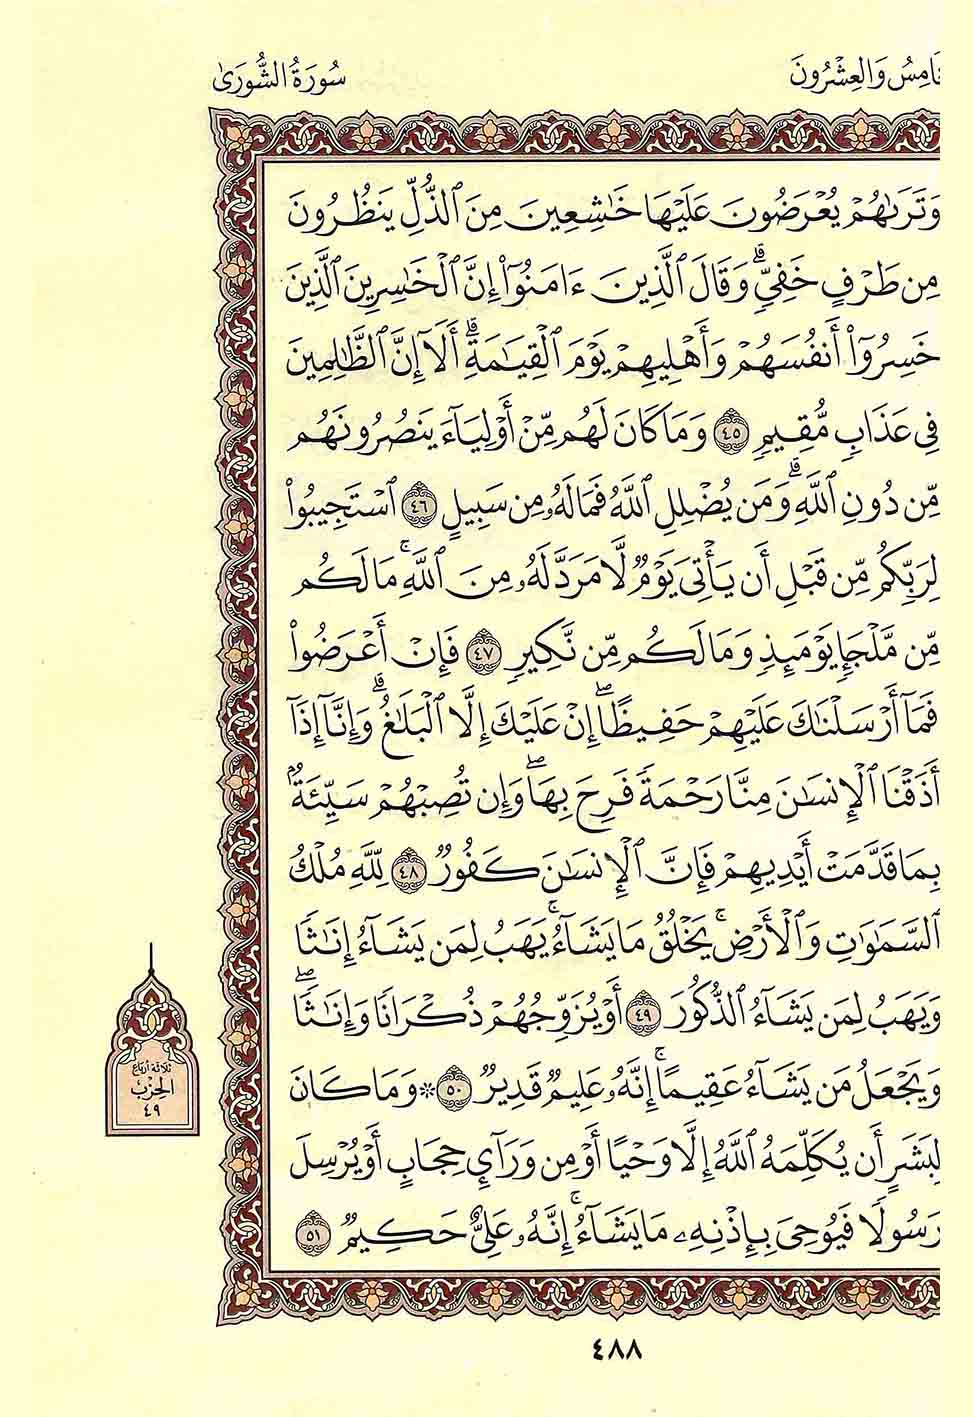 سُورَةُ الشُّورَىٰ
وَالعِشْرُونَ
وَتَرَىٰهُمْ يُعْرَضُونَ عَلَيْهَا خَٰشِعِينَ مِنَ ٱلذُّلِّ يَنظُرُونَ
مِن طَرْفٍ خَفِيٍّۗ وَقَالَ ٱلَّذِينَ ءَامَنُوٓاْ إِنَّ ٱلْخَٰسِرِينَ ٱلَّذِينَ
خَسِرُوٓاْ أَنفُسَهُمْ وَأَهْلِيهِمْ يَوْمَ ٱلْقِيَٰمَةِۗ أَلَآ إِنَّ ٱلظَّٰلِمِينَ
فِي عَذَابٍ مُّقِيمٍ ٤٥ وَمَا كَانَ لَهُم مِّنْ أَوْلِيَآءَ يَنصُرُونَهُم
مِّن دُونِ ٱللَّهِۗ وَمَن يُضْلِلِ ٱللَّهُ فَمَا لَهُۥ مِن سَبِيلٍ ٤٦ ٱسْتَجِيبُواْ
لِرَبِّكُم مِّن قَبْلِ أَن يَأْتِيَ يَوْمٌ لَّا مَرَدَّ لَهُۥ مِنَ ٱللَّهِۚ مَا لَكُم
مِّن مَّلْجَإٍ يَوْمَئِذٍ وَمَا لَكُم مِّن نَّكِيرٍ ٤٧ فَإِنْ أَعْرَضُواْ
فَمَآ أَرْسَلْنَٰكَ عَلَيْهِمْ حَفِيظًاۖ إِنْ عَلَيْكَ إِلَّا ٱلْبَلَٰغُۗ وَإِنَّآ إِذَآ
أَذَقْنَا ٱلْإِنسَٰنَ مِنَّا رَحْمَةً فَرِحَ بِهَاۖ وَإِن تُصِبْهُمْ سَيِّئَةٌۢ
بِمَا قَدَّمَتْ أَيْدِيهِمْ فَإِنَّ ٱلْإِنسَٰنَ كَفُورٌ ٤٨ لِّلَّهِ مُلْكُ
ٱلسَّمَٰوَٰتِ وَٱلْأَرْضِۚ يَخْلُقُ مَا يَشَآءُۚ يَهَبُ لِمَن يَشَآءُ إِنَٰثًا
وَيَهَبُ لِمَن يَشَآءُ ٱلذُّكُورَ ٤٩ أَوْ يُزَوِّجُهُمْ ذُكْرَانًا وَإِنَٰثًاۖ
وَيَجْعَلُ مَن يَشَآءُ عَقِيمًاۚ إِنَّهُۥ عَلِيمٌ قَدِيرٌ ٥٠ ۞ وَمَا كَانَ
لِبَشَرٍ أَن يُكَلِّمَهُ ٱللَّهُ إِلَّا وَحْيًا أَوْ مِن وَرَآيِٕ حِجَابٍ أَوْ يُرْسِلَ
رَسُولًا فَيُوحِيَ بِإِذْنِهِۦ مَا يَشَآءُۚ إِنَّهُۥ عَلِيٌّ حَكِيمٌ ٥١
ثلاثة أرباع
الحِزْبِ
٤٩
٤٨٨